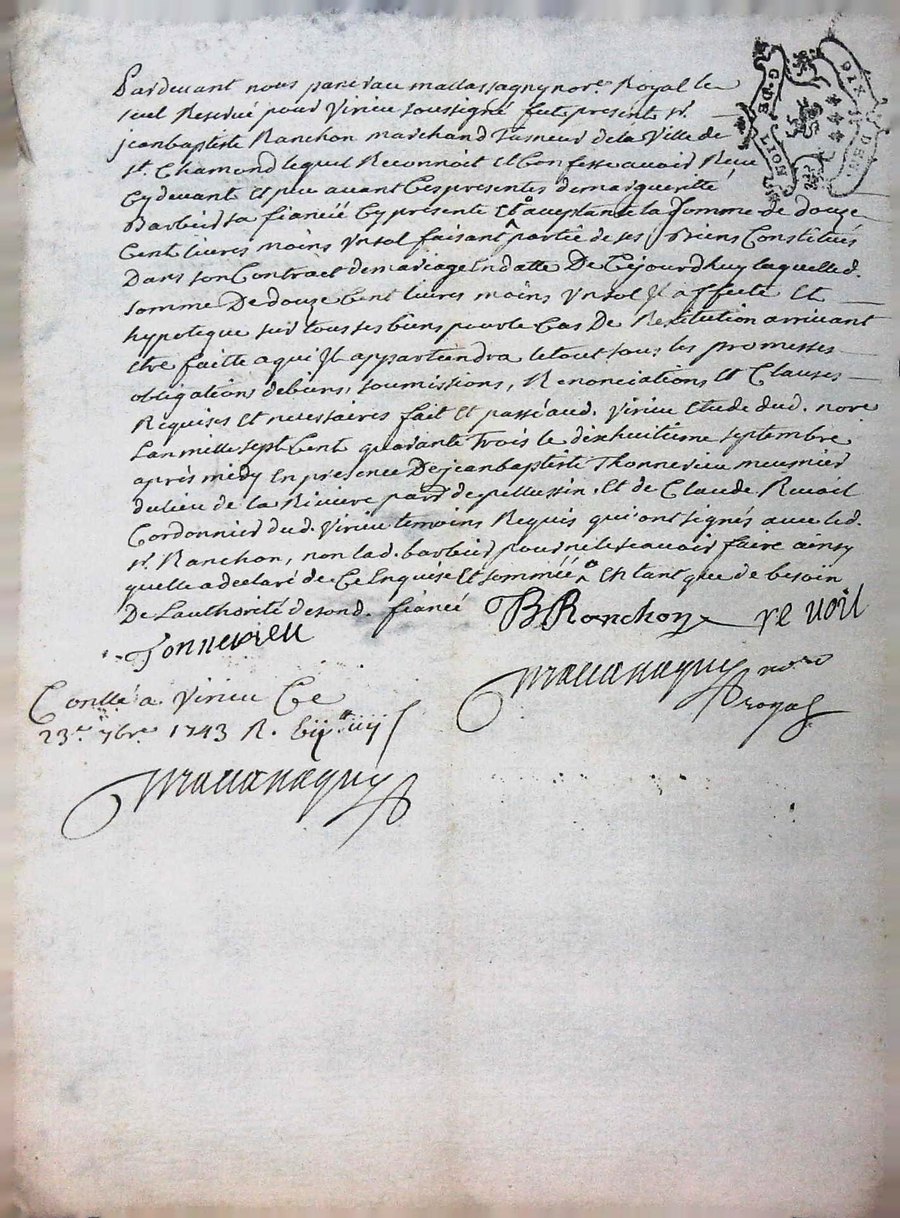 Pardevant nous pancrau mallassagny nore. Royal le
seul Reservé pour Virieu soussigné fut present sr.
jeanbaptiste Ranchon marchand Tasneur de la Ville de
st. Chamond lequel Reconnoit et Confesse avoir Receu
Cydevant et peu avant Ces presentes de marguerite
Barbier sa fiancéé Cy presente et acceptante la somme de douze
Cent livres moins un sol faisant partie de ses Biens Constitués
Dans son Contract de mariage En datte De Cejourdhuy laquelle d.
somme De douze Cent livres moins un sol Jl affecte et
hypoteque sur tous ses biens pour le Cas De Restitution arrivant
être faitte a qui Jl appartiendra le tout sous les promesses
obligations de biens, soumissions, Renonciations et Clauses
Requises et necessaires fait et passé aud. Virieu Etude dud. nore
Lan mille sept Cent quarante trois le dixhuitieme septembre
aprés midy En presence De jeanbaptiste Thonnerieu meusnier
du lieu de la Riviere parr. de pellussin. et de Claude Revoil
Cordonnier dud. Virieu temoins Requis qui ont signés avec led.
sr. Ranchon, non lad. barbier pour ne le scavoir faire ainsy
quelle a declaré de Ce Enquise et sommée En tant que de besoin
De Lauthorité de sond. fiancé
JB Ranchon re voil
Tonnerieu
nore
royal
Conllé a Virieu Ce
23e. 7bre 1743 R.
G. DE LION